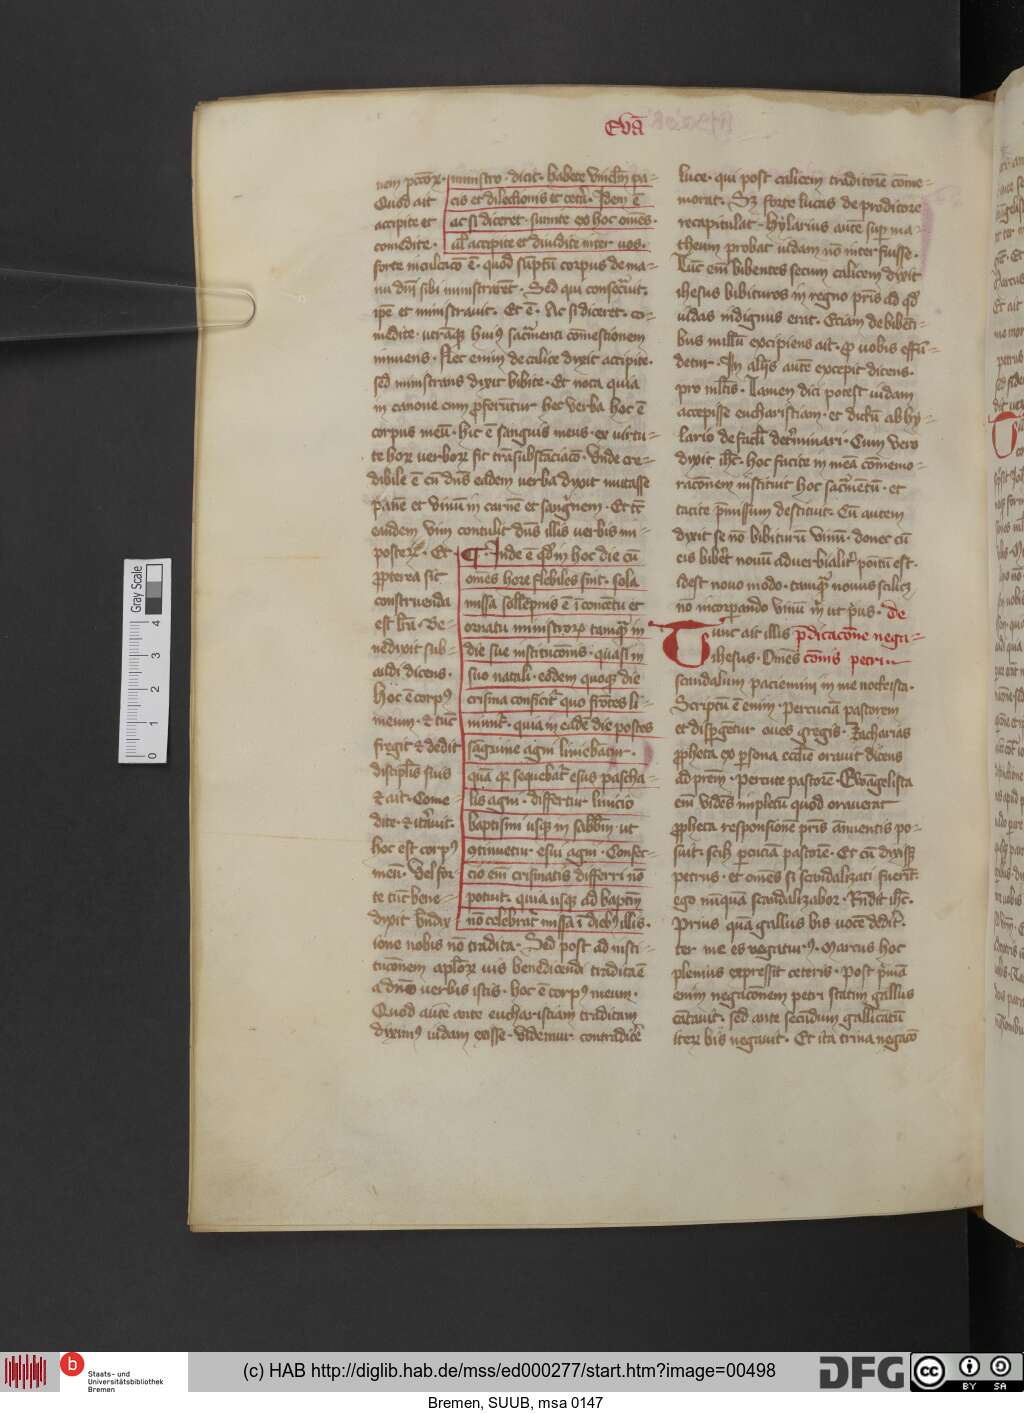 Evā
nem pccōꝝ · ministro · dicit · habete vincl̄m pa-
Quod ait cis et dilectionis et ceter̄ · Idem ē
accipite et ac si diceret · sumite ex hoc om̄es ·
comedite · ul̓ accipite et diuidite inter uos ·
forte inculcaco ē · quod sūptū corpus de ma-
nu dn̄i sibi ministrarēt · Sed qui consecͣuit ·
ip̄e et ministrauit · Et ē · Ac si diceret · co-
medite · hui9 sacͣmenti comestionem
innuens · Nec enim de calice dixit accipite ·
sed ministrans dixit bibite · Et nota quia
in canone cum ꝓferūtur hec verba hoc ē
corpus meū · hic ē sanguis meus · ex uirtu-
te hoꝝ verboꝝ fit trāsubstāciacō · Vnde cre-
dibile ē cū dn̄s eadem verba dixit mutasse
panē et vinū in carnē et sanguinem · Et
eandem vim contulit dn̄s illis verbis in
posteꝝ · Et
ꝓpterea sic
construenda
est lr̄a · Be-
nedixit sub-
audi dicens ·
Hoc ē corp9
meum · et tūc
fregit et dedit
discipl̄is suis
et ait · Come-
dite · et
hoc est corp9
meū · Vel for
te tūc bene-
dixit
¶ Inde ē qd̓ in hoc die cū
om̄es hore flebiles sint · sola
missa sollēpnis ē ī concētu et
ornatu ministroꝝ tamqͣ in
die sue institucōnis · quasi in
suo natali · eodem quoque die
crisma conficitͬ quo frōtes li-
niunt̄ · quia in eadē die postes
sāguine agni liniebātur ·
quā sequebatͬ esus pascha-
lis agni · differtur linicio
baptismi usque in sabbm̄ · ut
9tinuetur esui agni · Confec-
cio em̄ crismatis differri nō
potuit · quia usque ad baptm̄
nō celebratͬ missa ī dieb9 illis ·
ione nobis nō tradita · Sed post ad insti-
tucōnem apl̄oꝝ uis benedicendi tradita ē
a dn̄o verbis istis · hoc ē corp9 meum ·
Quod aūte ante eucharistiam traditam
dixim9 iudam exisse · Videtur contradicē
luce · qui post calicem traditorē cōme-
morat · Sꝫ forte lucas de proditore
recapitulat · Hylarius autē suꝑ ma-
theum probat iudam nō interfuisse ·
Tūc em̄ bibentes secum calicem dixit
ihesus bibituros in regno pr̄is ad qd̓
iudas indignus erat · Etiam de bibēti-
bus nullū excipiens ait · ꝓ uobis effū-
detur · In alijs autē excepit dicens ·
pro ml̄tis · Tamen dici potest iudam
accepisse eucharistiam · et dictū ab hy-
lario de facl̓i det̓minari · Cum vero
dixit ihc̄ · hoc facite in meā cōmemo-
racōnem instituit hoc sacͣmentū · et
tacite pͥmissum destituit · Cū autem
dixit se nō bibiturū vinū · donec cū
eis biberet nouū aduerbialitͬ poitū est ·
idest nouo modo · tamqͣ nouus scilicꝫ
nō incorpando vinū ut pͥus · De
Tunc ait illis p̄dicacōne nega-
ihesus · Om̄es cōnis petri
scandalum paciemini in me nocte ista ·
Scriptū ē enim · Percuciā pastorem
et disꝑgētur oues gregis · Zacharias
ꝓpheta ex ꝑsona ecclīe orauit dicens
ad pr̄em · Percute pastorē · Ewāgelista
em̄ vidēs impletū quod orauerat
ꝓpheta responsionē pr̄is annuentis po-
suit · scilꝫ ꝑcuciā pastorē · Et cū dixisset
petrus · et om̄es si scandalizati fuerīt ·
ego nūquā scandalizabor · Rn̄dit ihc̄ ·
Prius quā gallus bis vocē dederit ·
ter me es negatur9 · Marcus hoc
plenius expressit ceteris · Post pͥmā
enim negacōnem petri statim gallus
cātauit · sed ante secūdum gallicātū
iteꝝ bis negauit · Et ita trina negacō
Gray Scale
4
3
2
1
0
b
Staats- und
Universitätsbibliothek
Bremen
(c) HAB http://diglib.hab.de/mss/ed000277/start.htm?image=00498
DFG
cc
BY SA
Bremen, SUUB, msa 0147